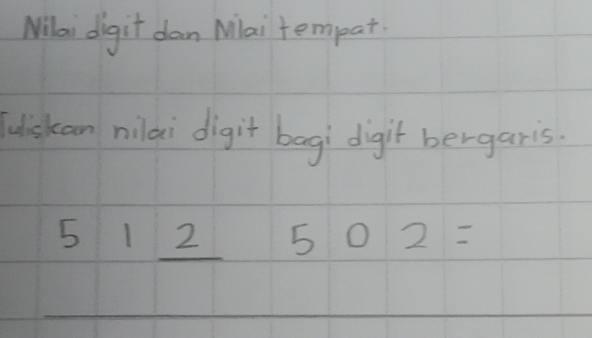 Nilai digit dan Nilai tempat.
Tuliskan nilai digit bagi digit bergaris.
5 1 2 5 0 2 =